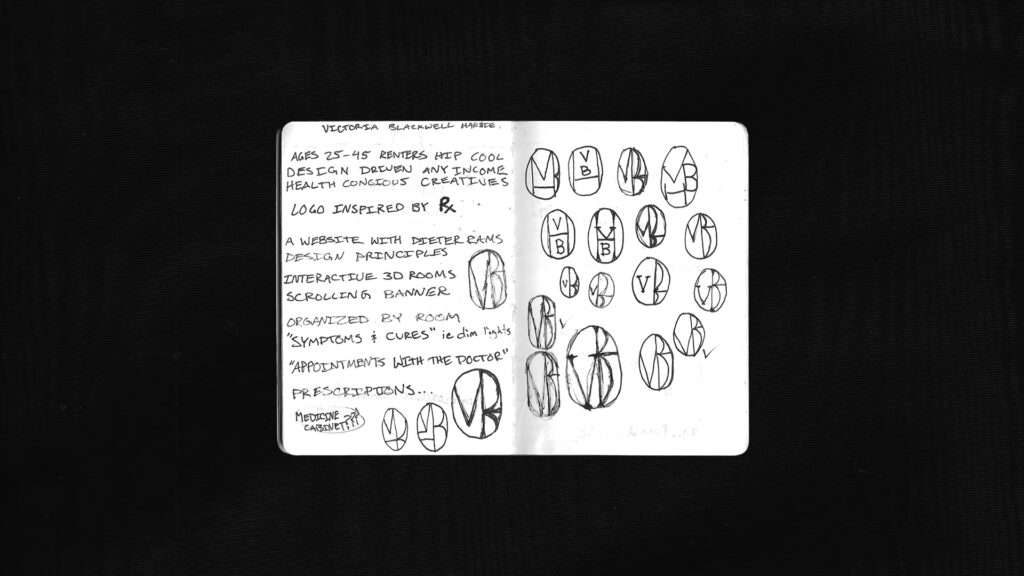 VICTORIA BLACKWELL
AGES 25-45 RENTERS HIP COOL
DESIGN DRIVEN ANY INCOME
HEALTH CONCIOUS CREATIVES
LOGO INSPIRED BY ℞
A WEBSITE WITH DIETER RAMS
DESIGN PRINCIPLES
INTERACTIVE 3D ROOMS
SCROLLING BANNER
VB
ORGANIZED BY ROOM
"SYMPTOMS & CURES" ie dim lights
"APPOINTMENTS WITH THE DOCTOR"
PRESCRIPTIONS...
MEDICINE
CABINET???
VB VB VB
VB VB VB VB
VB VB VB VB
VB VB VB VB
VB VB VB VB VB